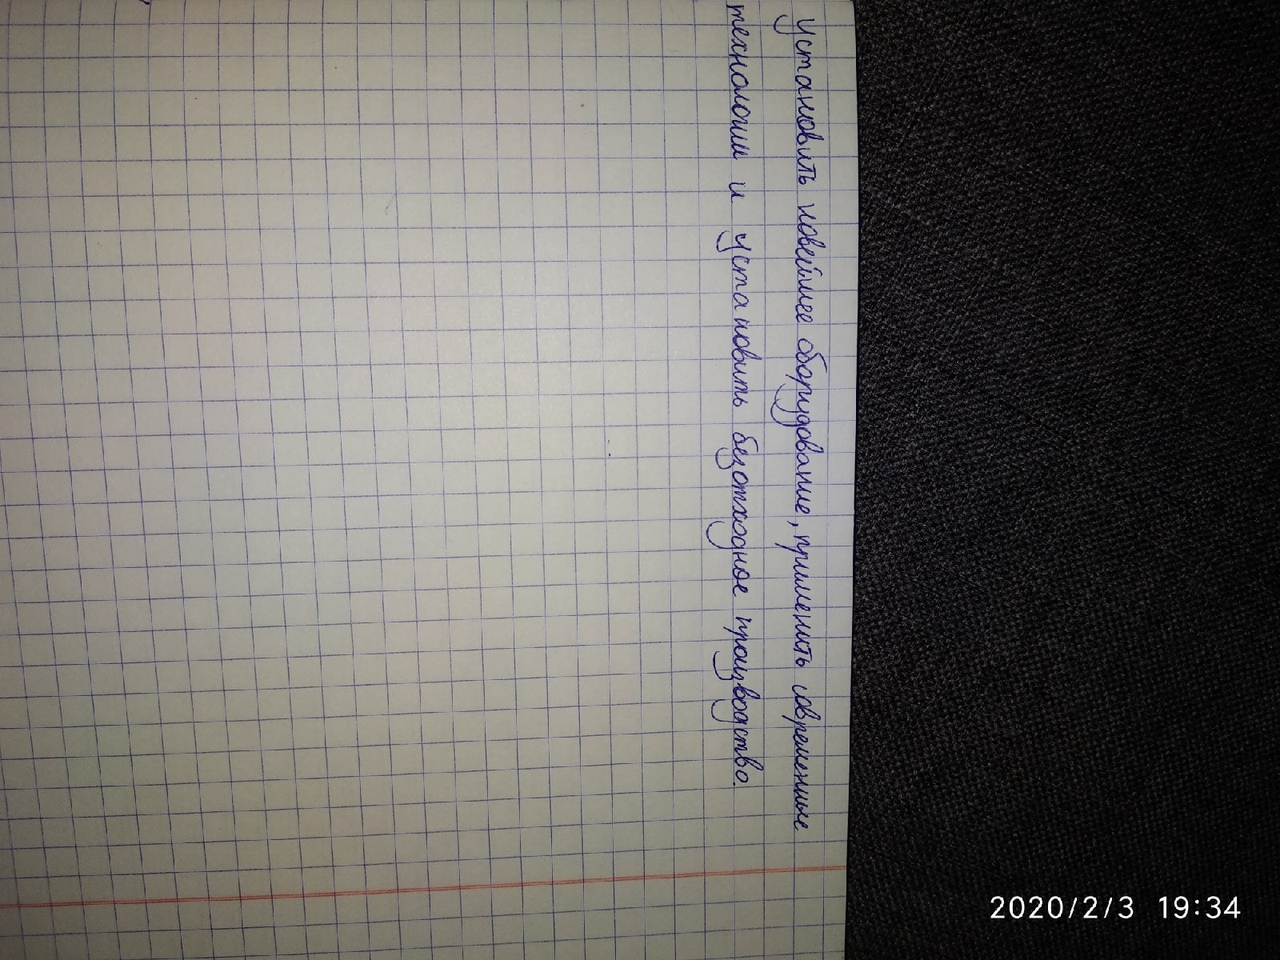 Установить новейшее оборудование, применить современные
технологии и установить безотходное производство.
2020/2/3 19:34